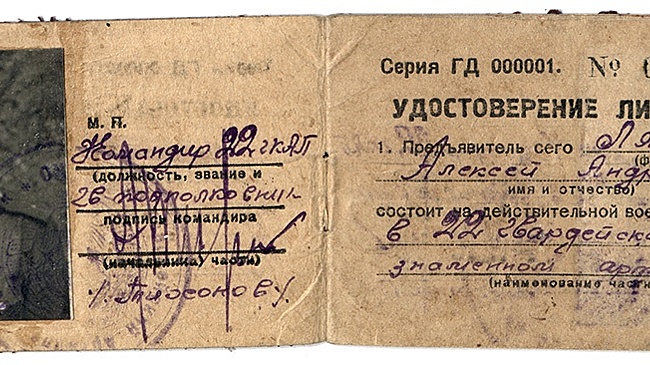 М. П.
Командир 22 ГКАП
(должность, звание и
гв подполковник
подпись командира
(начальника) части)
Серия ГД 000001. №
УДОСТОВЕРЕНИЕ ЛИ
1. Предъявитель сего Ля
Алексей Андр
имя и отчество)
состоит на действительной вое
в 22 Гвардейско
знаменном арт
(наименование част